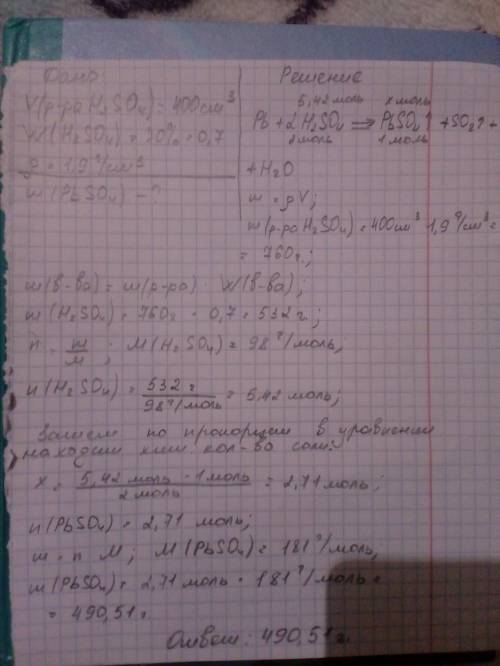 Дано
V(р-ра H₂SO₄) = 400 см³
W(H₂SO₄) = 70% = 0,7
ρ = 1,9 г/см³
m(PbSO₄) - ?
Решение
5,42 моль x моль
Pb + 2H₂SO₄ ⟹ PbSO₄↑ + SO₂↑ +
2 моль 1 моль
+ H₂O
m = ρV;
m(р-ра H₂SO₄) = 400 см³ · 1,9 г/см³ =
= 760 г;
m(в-ва) = m(р-ра) · W(в-ва);
m(H₂SO₄) = 760 г · 0,7 = 532 г;
n = m/M; M(H₂SO₄) = 98 г/моль;
n(H₂SO₄) = 532 г / 98 г/моль = 5,42 моль;
Затем по пропорции в уравнении
находим хим. кол-во соли:
x = 5,42 моль · 1 моль / 2 моль = 2,71 моль;
n(PbSO₄) = 2,71 моль;
m = n · M; M(PbSO₄) = 181 г/моль,
m(PbSO₄) = 2,71 моль · 181 г/моль =
= 490,51 г.
Ответ: 490,51 г.